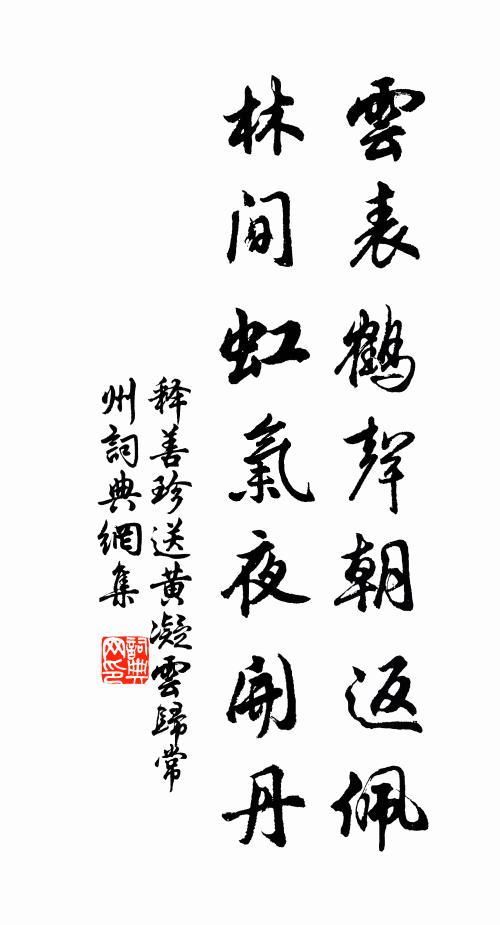 雲表鶴聲朝返佩
林间虹氣夜開丹
释善珍送黄凝雲歸常
州詞典網集
詞典网印